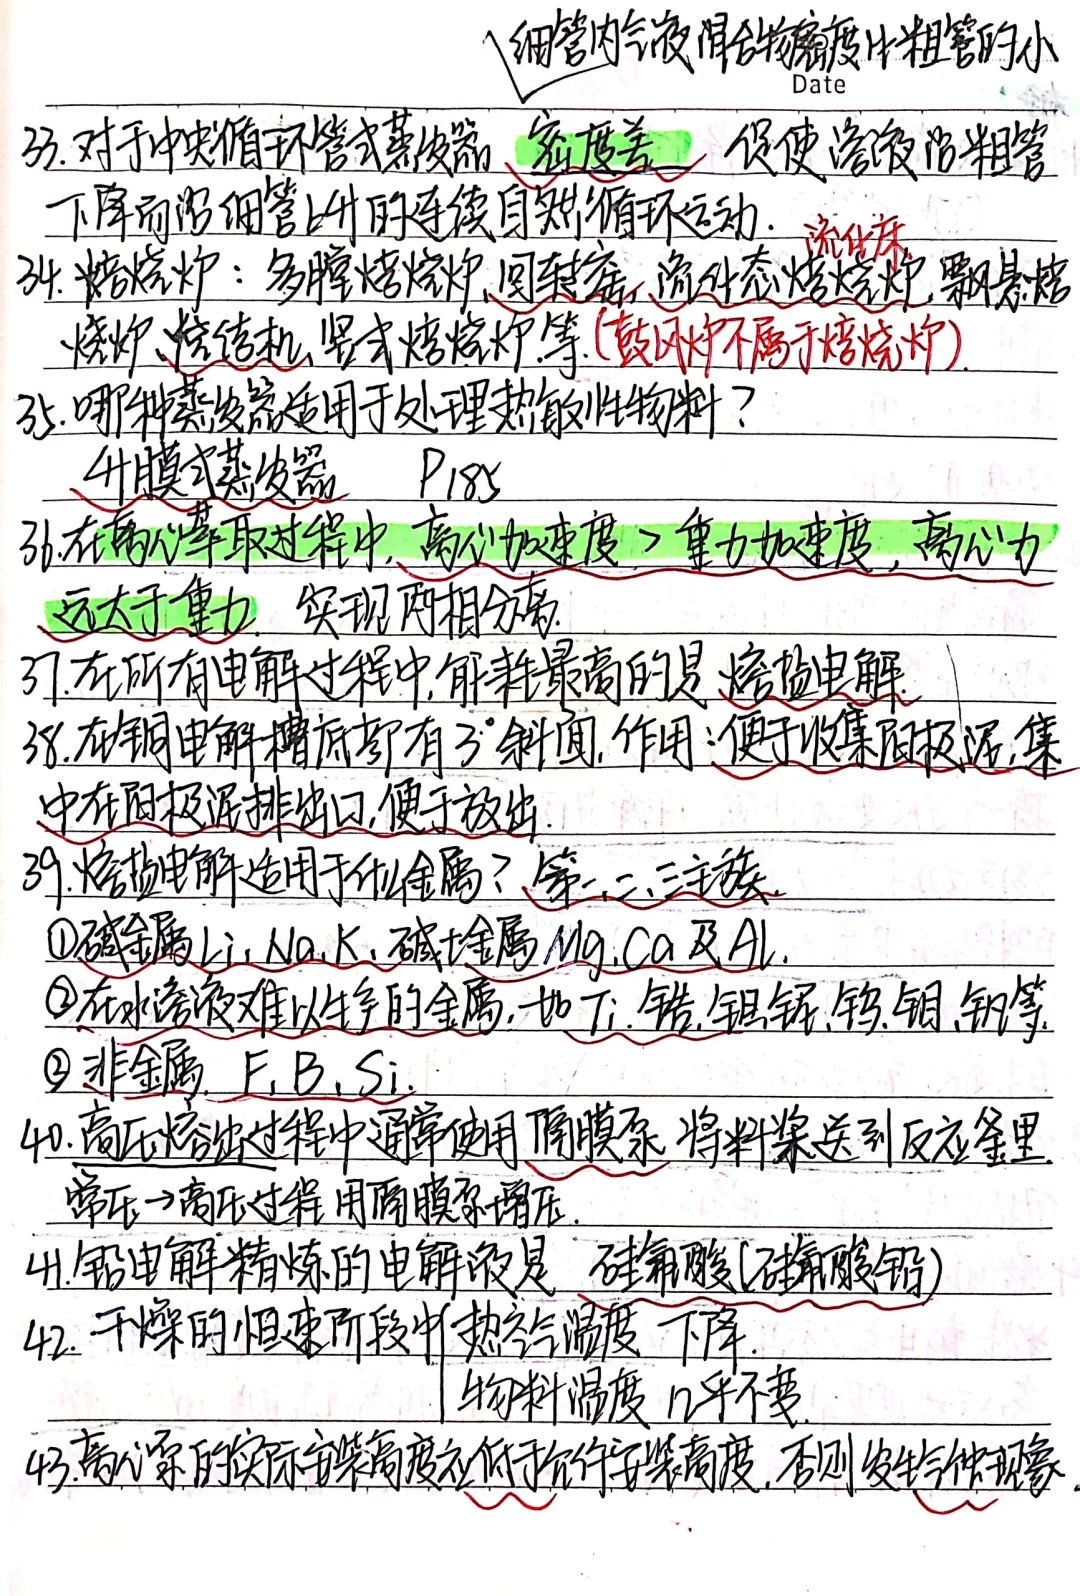 细管内气液混合物密度比粗管的小
Date
33.对于中央循环管式蒸发器 密度差 促使溶液沿粗管
下降而沿细管上升的连续自然循环运动.
流化床
34.焙烧炉:多膛焙烧炉,回转窑,流外态焙烧炉,飘悬焙
烧炉、烧结机、竖式焙烧炉.等.(鼓风炉不属于焙烧炉)
35.哪种蒸发器适用于处理热敏性物料?
升膜式蒸发器 P185
36.在离心萃取过程中,离心加速度>重力加速度,离心力
远大于重力.实现两相分离.
37.在所有电解过程中,能耗最高的是 熔盐电解
38.在铜电解槽底部有3°斜面,作用:便于收集阳极泥,集
中在阳极泥排出口,便于放出.
39.熔盐电解适用于什么金属?第一、二、三主族.
①碱金属Li、Na、K、碱土金属Mg,Ca及Al.
②在水溶液难以生产的金属,如Ti.锆.钽铌,钨.钼.钒等.
③非金属.F,B,Si.
40.高压溶出过程中通常使用 隔膜泵 将料浆送到反应釜里.
常压→高压过程用隔膜泵增压.
41.铅电解精炼的电解液是 硅氟酸(硅氟酸铅)
42.干燥的恒速阶段中 热空气温度 下降.
物料温度 几乎不变.
43.离心泵的实际安装高度应低于允许安装高度.否则发生气蚀现象.